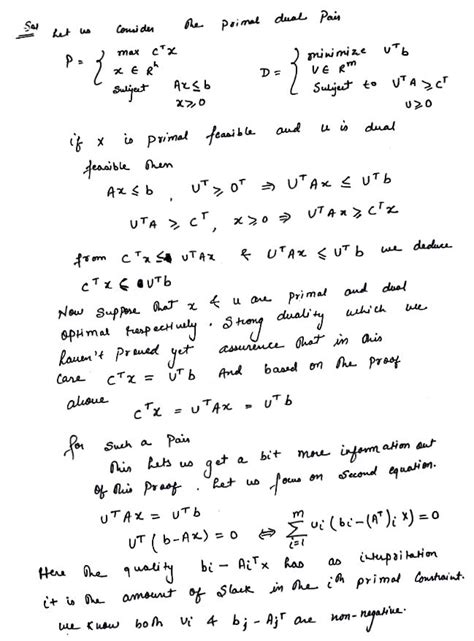 Sol Let us consider the primal dual Pair
P = { max cᵀx
x ∈ Rⁿ
Subject Ax ≤ b
x ≥ 0
D = { minimize Uᵀb
V ∈ Rᵐ
Subject to UᵀA ≥ Cᵀ
U ≥ 0
if x is primal feasible and u is dual
feasible then
Ax ≤ b , Uᵀ ≥ 0ᵀ ⇒ UᵀAx ≤ Uᵀb
UᵀA ≥ Cᵀ, x ≥ 0 ⇒ UᵀAx ≥ Cᵀx
from Cᵀx ≤ UᵀAx & UᵀAx ≤ Uᵀb we deduce
Cᵀx ≤ Uᵀb
Now Suppose that x & u are primal and dual
optimal respectively. Strong duality which we
haven't proved yet assurence that in this
care Cᵀx = Uᵀb And based on the Proof
above
Cᵀx = UᵀAx = Uᵀb
for Such a Pair
This lets us get a bit more information out
of this proof. Let us focus on Second equation.
UᵀAx = Uᵀb
Uᵀ(b-Ax) = 0 ⇔ ∑ᵢ₌₁ᵐ Uᵢ(bᵢ-(Aᵀ)ᵢ x) = 0
Here the quality bᵢ - Aᵢᵀx has as interpritation
it is the amount of Slack in the iᵗʰ primal Constraint.
we know both Vᵢ & bⱼ - Aⱼᵀ are non-negative.